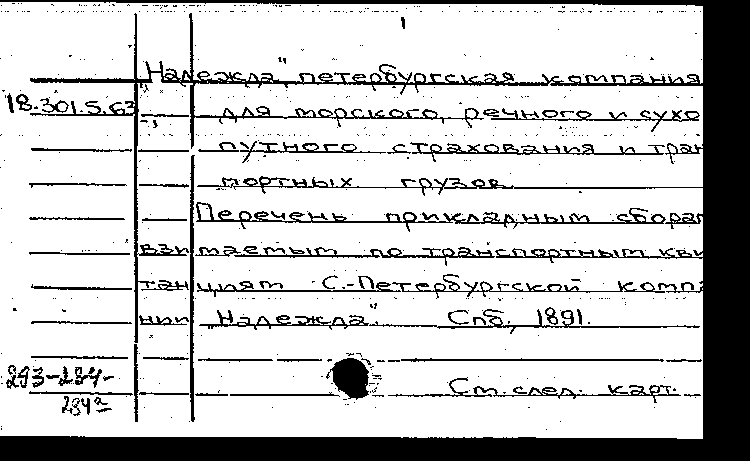 1
"Надежда", петербургская компания
18.301.5.63
для морского, речного и сухо
путного страхования и тран
портных грузов.
Перечень прикладным сборам
взимаемым по транспортным кви
танциям С.-Петербургской компа
нии "Надежда". Спб., 1891.
293-294-
294а
См. след. карт.